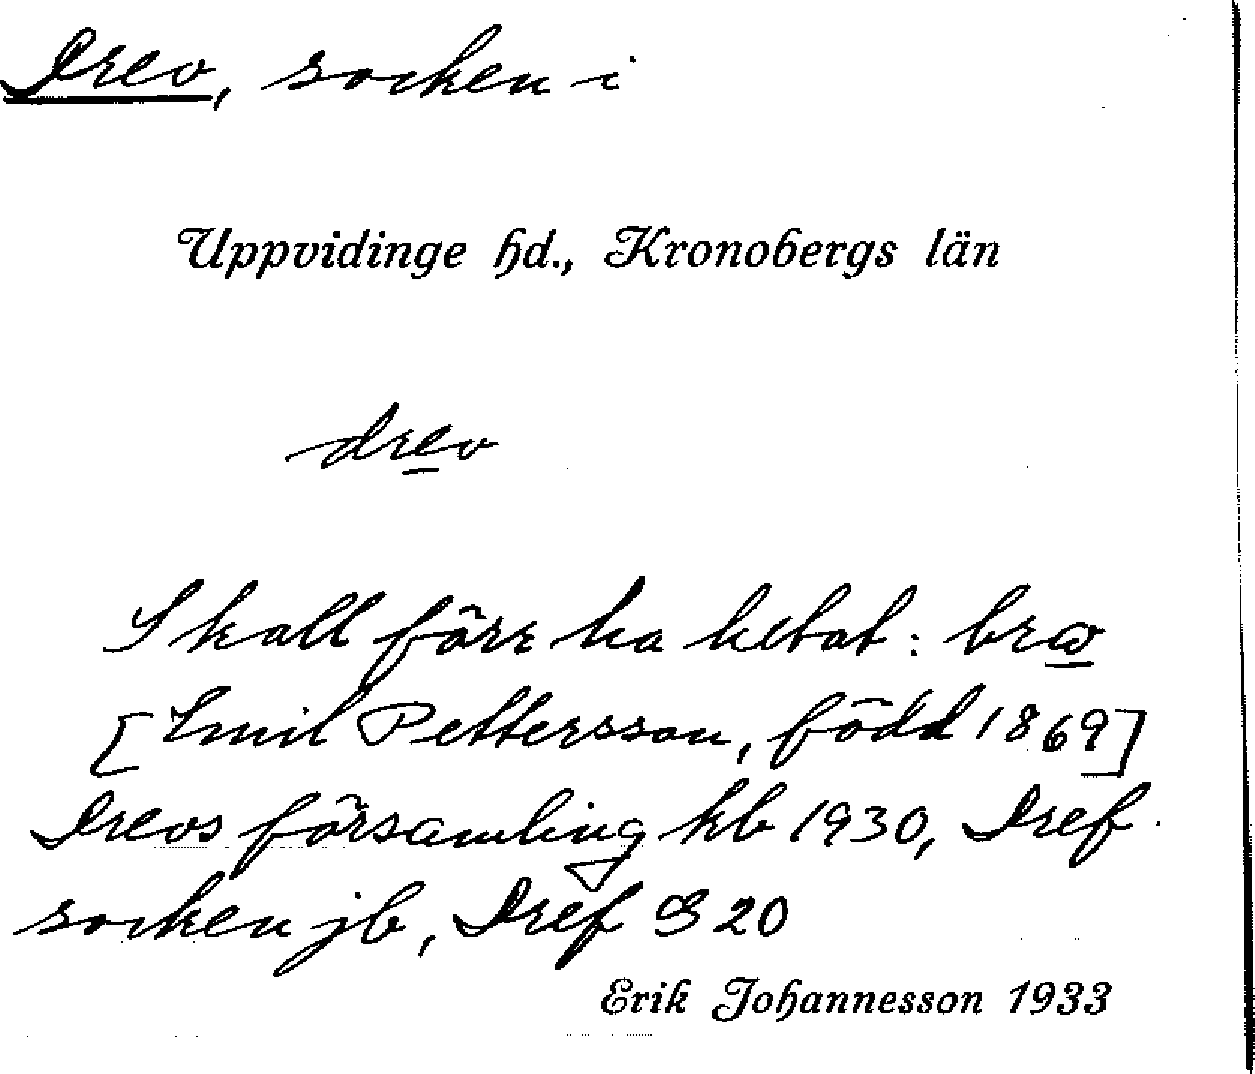 Drev, socken i
Uppvidinge hd., Kronobergs län
drev
Skall förr ha hetat: brœ
[Emil Pettersson, född 1869]
Drevs församling kb 1930, Dref
socken jb, Dref GS 20
Erik Johannesson 1933